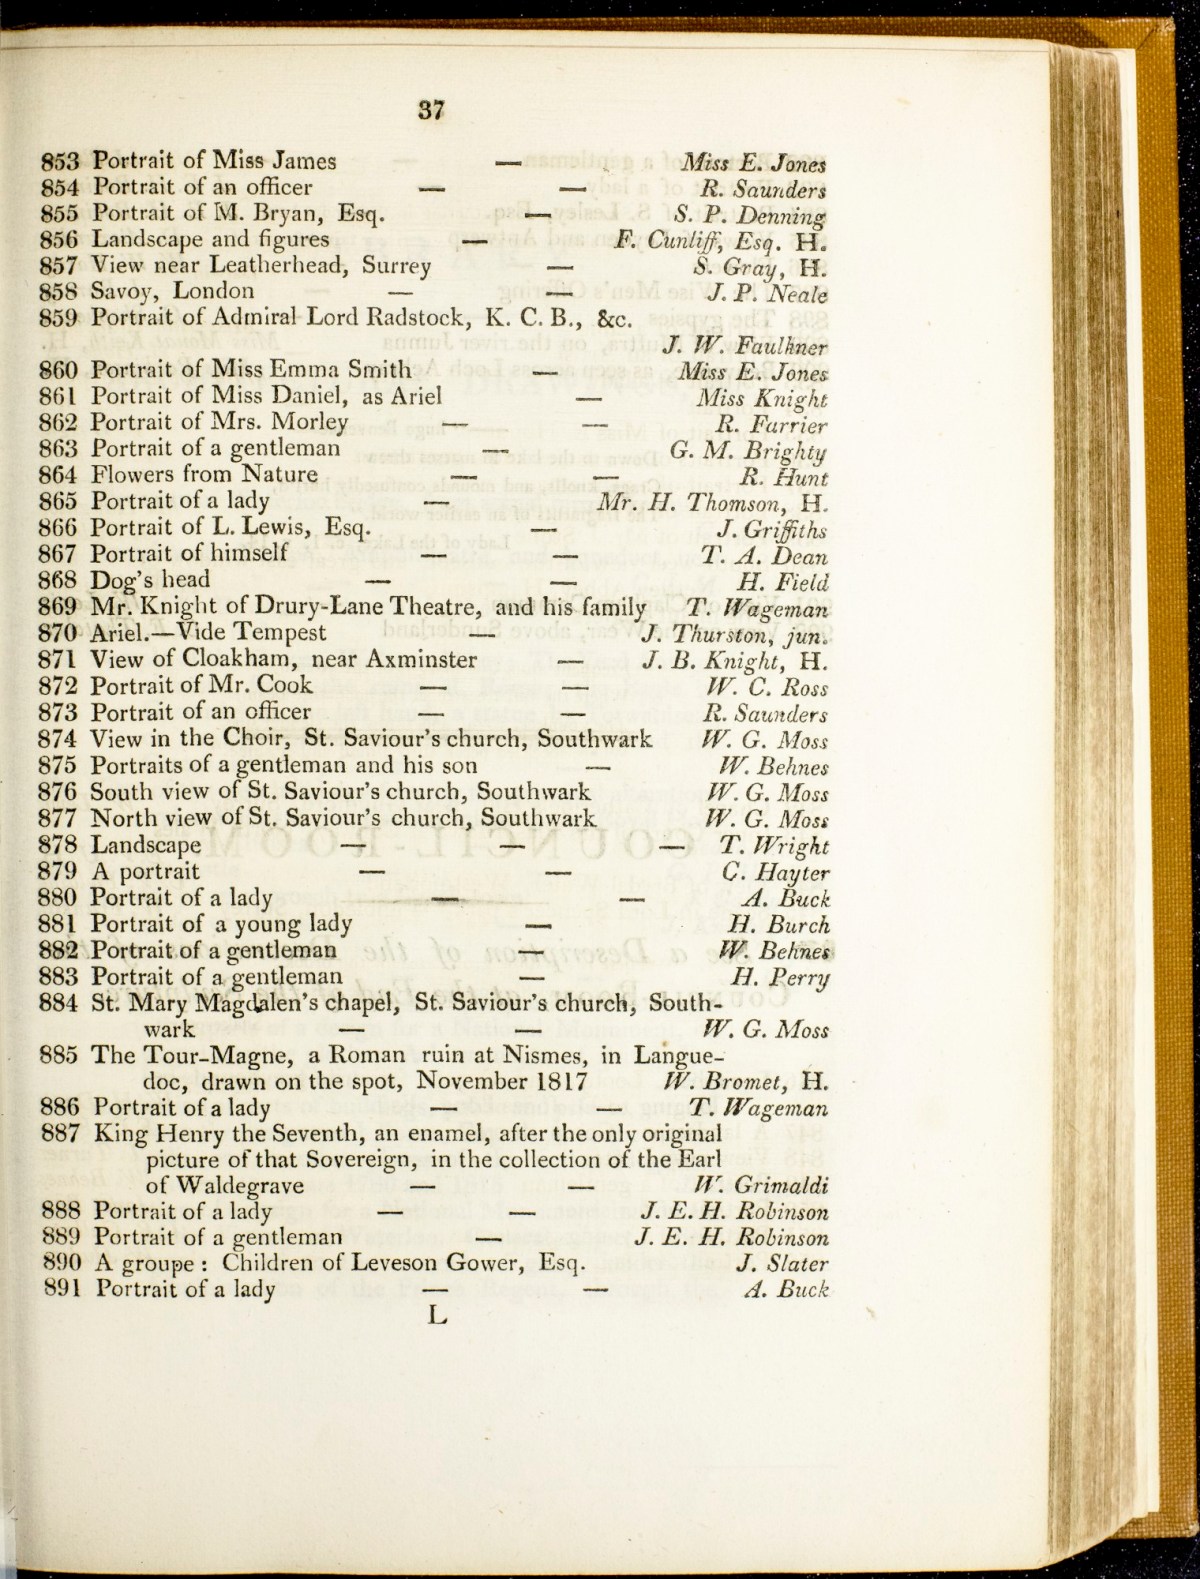 37
853 Portrait of Miss James — Miss E. Jones
854 Portrait of an officer — — R. Saunders
855 Portrait of M. Bryan, Esq. — S. P. Denning
856 Landscape and figures — F. Cunliff, Esq. H.
857 View near Leatherhead, Surrey — S. Gray, H.
858 Savoy, London — — J. P. Neale
859 Portrait of Admiral Lord Radstock, K. C. B., &c.
J. W. Faulkner
860 Portrait of Miss Emma Smith — Miss E. Jones
861 Portrait of Miss Daniel, as Ariel — Miss Knight
862 Portrait of Mrs. Morley — — R. Farrier
863 Portrait of a gentleman — G. M. Brighty
864 Flowers from Nature — — R. Hunt
865 Portrait of a lady — Mr. H. Thomson, H.
866 Portrait of L. Lewis, Esq. — J. Griffiths
867 Portrait of himself — — T. A. Dean
868 Dog's head — — H. Field
869 Mr. Knight of Drury-Lane Theatre, and his family T. Wageman
870 Ariel.—Vide Tempest — J. Thurston, jun.
871 View of Cloakham, near Axminster — J. B. Knight, H.
872 Portrait of Mr. Cook — — W. C. Ross
873 Portrait of an officer — — R. Saunders
874 View in the Choir, St. Saviour's church, Southwark W. G. Moss
875 Portraits of a gentleman and his son — W. Behnes
876 South view of St. Saviour's church, Southwark W. G. Moss
877 North view of St. Saviour's church, Southwark W. G. Moss
878 Landscape — — — T. Wright
879 A portrait — — C. Hayter
880 Portrait of a lady — — A. Buck
881 Portrait of a young lady — H. Burch
882 Portrait of a gentleman — W. Behnes
883 Portrait of a gentleman — H. Perry
884 St. Mary Magdalen's chapel, St. Saviour's church, South-
wark — — W. G. Moss
885 The Tour-Magne, a Roman ruin at Nismes, in Langue-
doc, drawn on the spot, November 1817 W. Bromet, H.
886 Portrait of a lady — — T. Wageman
887 King Henry the Seventh, an enamel, after the only original
picture of that Sovereign, in the collection of the Earl
of Waldegrave — — W. Grimaldi
888 Portrait of a lady — — J. E. H. Robinson
889 Portrait of a gentleman — J. E. H. Robinson
890 A groupe : Children of Leveson Gower, Esq. J. Slater
891 Portrait of a lady — — A. Buck
L